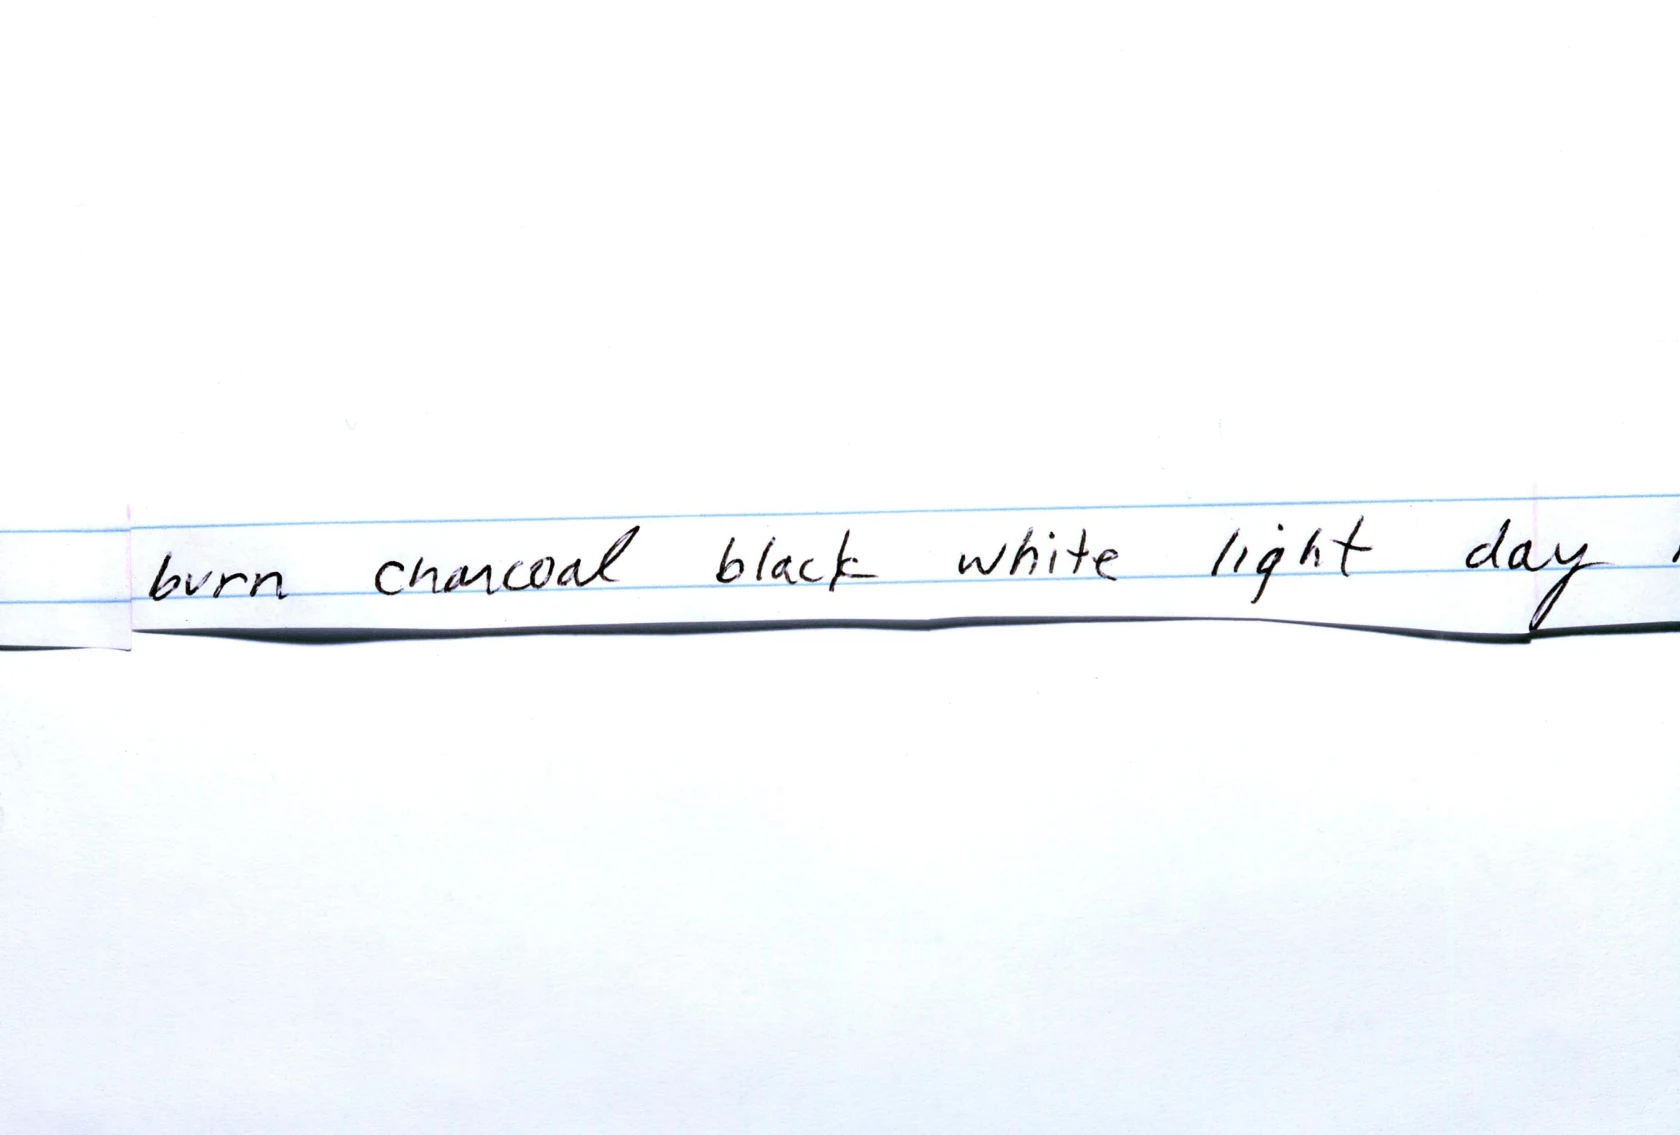 burn charcoal black white light day